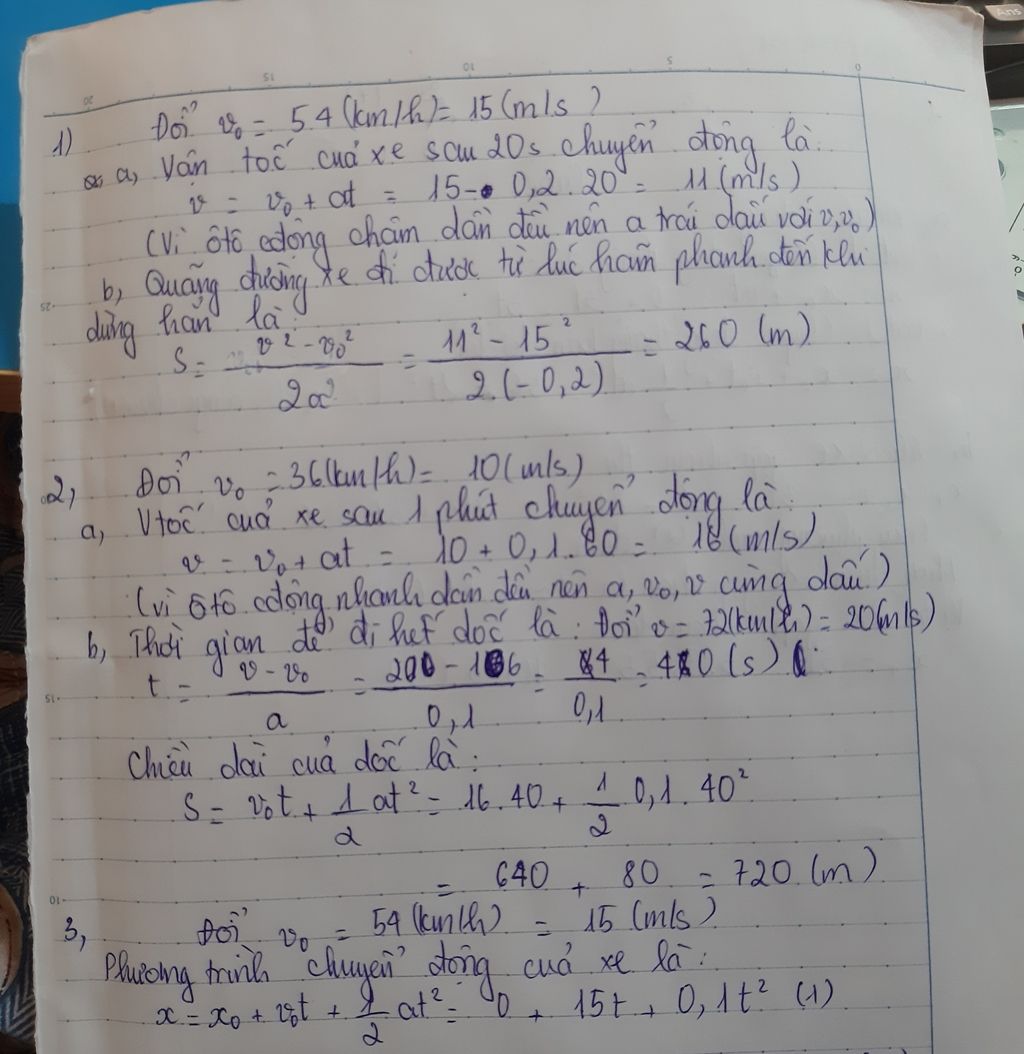 1) Đổi v₀ = 54 (km/h) = 15 (m/s)
a, Vận tốc của xe sau 20s chuyển động là:
v = v₀ + at = 15 - 0,2 . 20 = 11 (m/s)
(Vì ôtô cđộng chậm dần đều nên a trái dấu với v, v₀)
b, Quãng đường xe đi được từ lúc hãm phanh đến khi
dừng hẳn là:
S = \frac{v² - v₀²}{2a} = \frac{11² - 15²}{2.(-0,2)} = 260 (m)
2, Đổi v₀ = 36 (km/h) = 10 (m/s)
a, Vtốc của xe sau 1 phút chuyển động là:
v = v₀ + at = 10 + 0,1 . 60 = 16 (m/s)
(vì ôtô cđộng nhanh dần đều nên a, v₀, v cùng dấu)
b, Thời gian để đi hết dốc là: Đổi v = 72 (km/h) = 20 (m/s)
t = \frac{v - v₀}{a} = \frac{20 - 16}{0,1} = \frac{4}{0,1} = 40 (s)
Chiều dài của dốc là:
S = v₀t + \frac{1}{2} at² = 16 . 40 + \frac{1}{2} 0,1 . 40²
= 640 + 80 = 720 (m)
3, Đổi v₀ = 54 (km/h) = 15 (m/s)
Phương trình chuyển động của xe là:
x = x₀ + v₀t + \frac{1}{2} at² = 0 + 15t + 0,1t² (1)